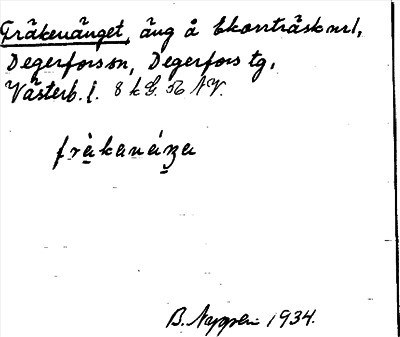 Fräkenänget, äng å Ekorrträsk nr 1,
Degerfors sn, Degerfors tg,
Västerb. l. 8 k G. 5i NV.
fràkanáŋa
B. 1934.